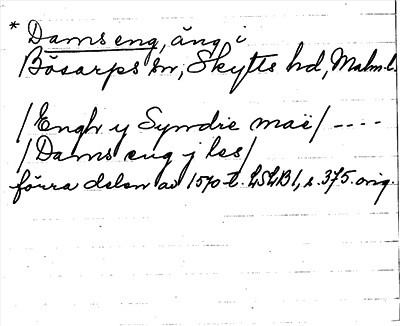 * Dams eng, äng i
Bösarps sn, Skytts hd, Malm. l.
/Engh y Syndre maë/ ----
/Dams eng j les/
förra delen av 1570-t. LSLB 1, s. 375. orig.